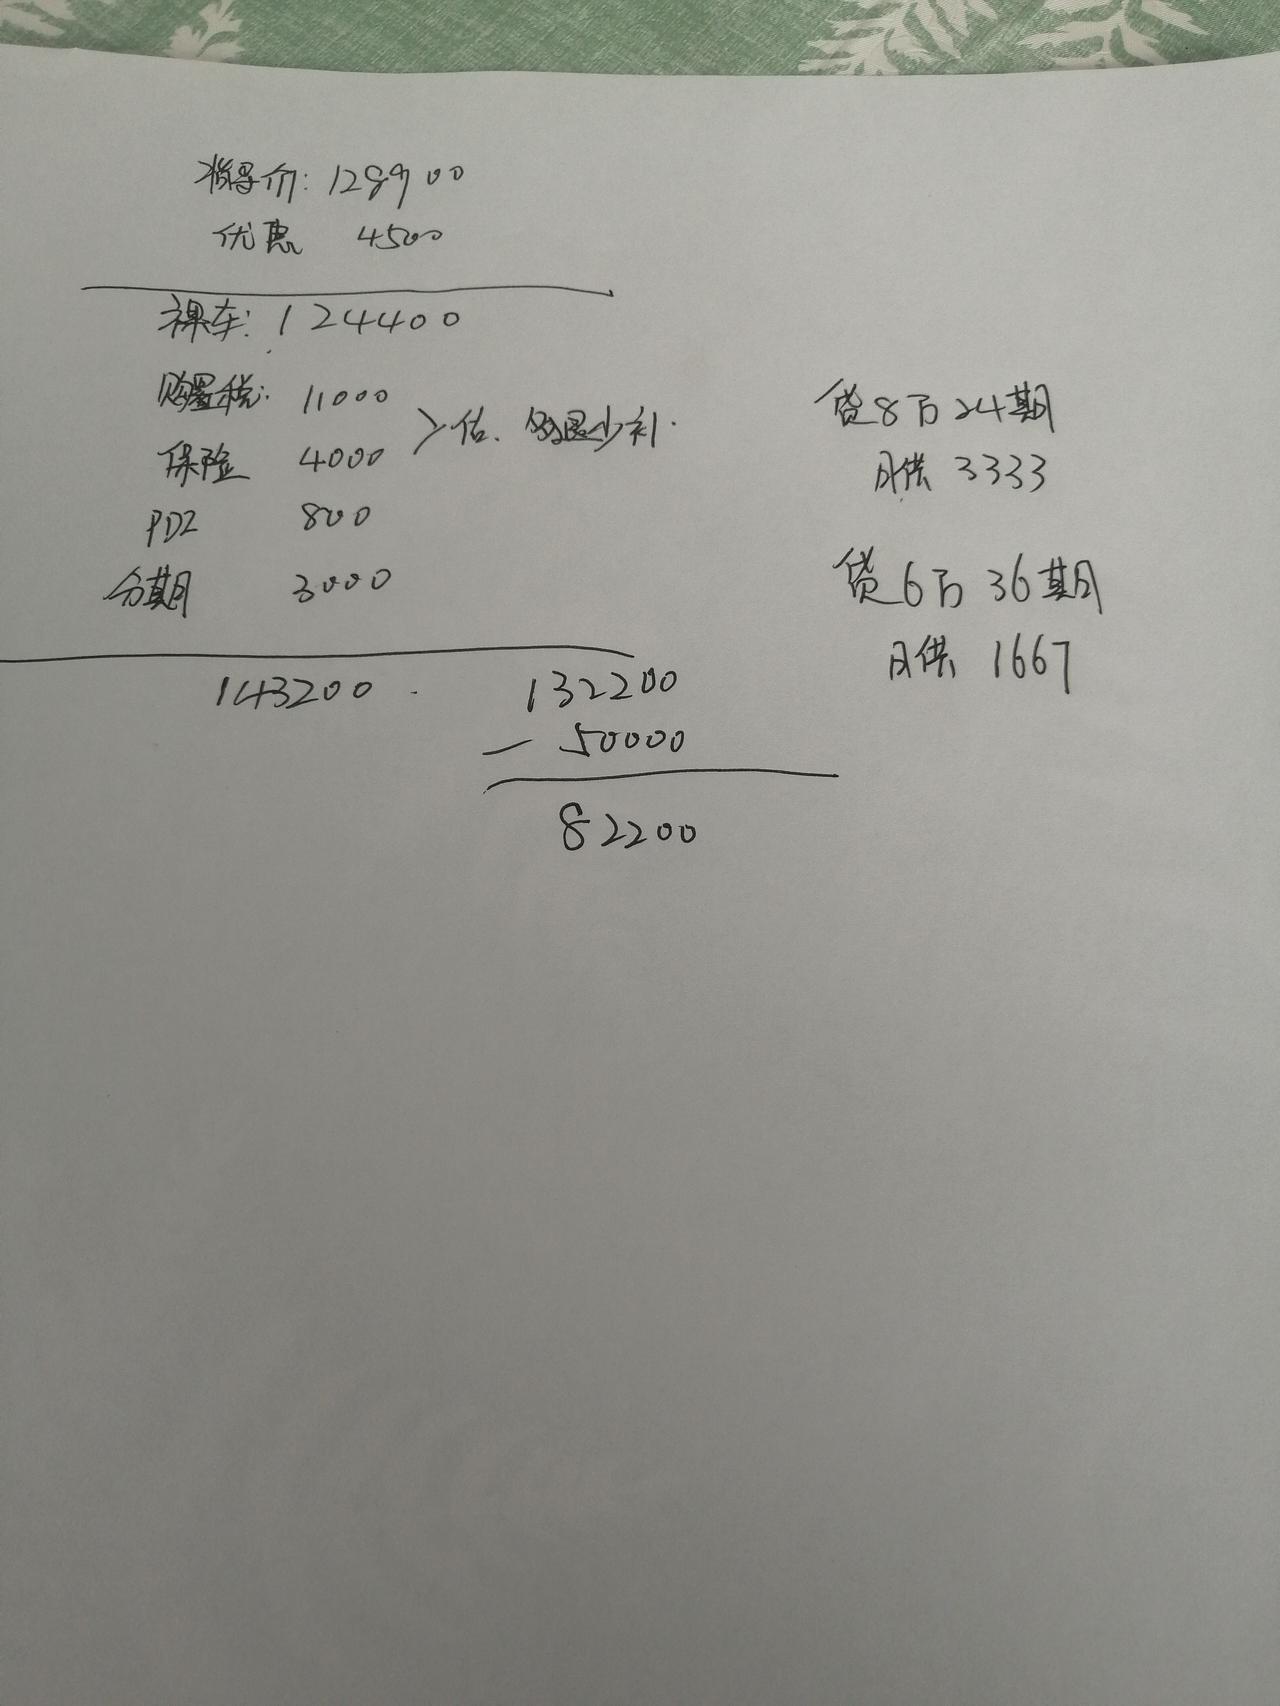 指导价: 128900
优惠 4500
裸车: 124400
购置税: 11000
保险 4000
>估、多退少补.
PDI 800
分期 3000
143200
132200
- 50000
82200
贷8万 24期
月供 3333
贷6万 36期
月供 1667